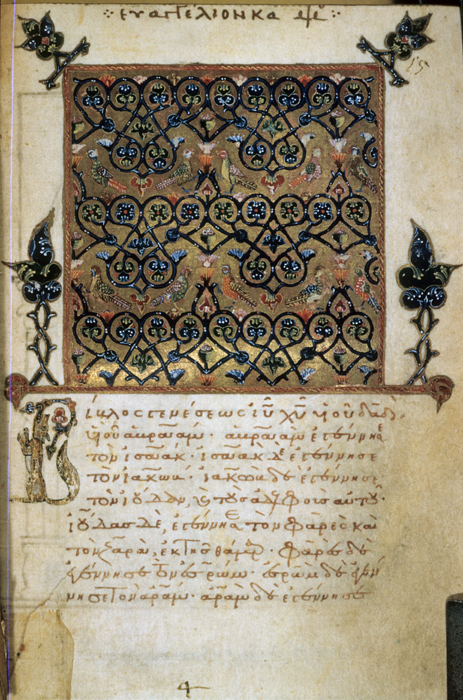 ΕΥΑΓΓΕΛΙΟΝ ΚΑ
15
Βίβλος γενέσεως ἰῦ χῦ υἱοῦ δαδ
υἱοῦ ἀβραάμ· ἀβραὰμ ἐγέννησε
τὸν ἰσαάκ· ἰσαὰκ δὲ ἐγέννησε
τὸν ἰακώβ· ἰακὼβ δὲ ἐγέννησε
τὸν ἰούδαν, ϗ τοὺς ἀδελφοὺς αὐτοῦ·
ἰούδας δὲ, ἐγέννησε τὸν φαρὲς καὶ
τὸν ζαρὰ, ἐκ τῆς θάμαρ· φαρὲς δὲ
ἐγέννησε τὸν ἐσρώμ· ἐσρὼμ δὲ ἐγέν
νησε τὸν ἀράμ· ἀρὰμ δὲ ἐγέννησε